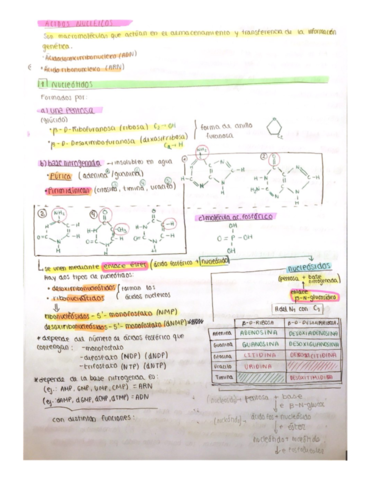 ÁCIDOS NUCLEICOS
Son macromoléculas que actúan en el almacenamiento y transferencia de la información
genética.
• Ácido desoxirribonucleico (ADN)
• Ácido ribonucleico (ARN)
① Nucleótidos
Formados por
a) una pentosa
β-D-Ribofuranosa (ribosa) C₂-OH
β-D-Desoxirribofuranosa (dexosirribosa) C₂-H
forma de anillo
furanosa
b) base nitrogenada → insolubles en agua
• Púricas (adenina/guanina)
• Pirimidínicas (citosina, timina, uracilo)
c) molécula ác. fosfórico
OH
O = P - OH
OH
Se unen mediante enlace éster (ácido fosfórico + nucleósido)
Hay dos tipos de nucleótidos:
• desoxirribonucleótidos
• ribonucleótidos
forman los
ácidos nucleicos
ribonucleósidos - 5' - monofosfato (NMP)
desoxirribonucleósidos - 5' - monofosfato (dNMP)
* depende del número de ácidos fosfórico que
contenga: - monofosfato
- difosfato (NDP) (dNDP)
- trifosfato (NTP) (dNTP)
* depende de la base nitrogenada es:
(ej: AMP, GMP, UMP, CMP) = ARN
(ej: dAMP, dGMP, dCMP, dTMP) = ADN
con distintas funciones:
nucleósidos
(pentosa + base
nitrogenada)
enlace
β-N-glucosídico
β-D-RIBOSA
β-D-DESOXIRRIBOSA
Adenina ADENOSINA DESOXIADENOSINA
Guanina GUANOSINA DESOXIGUANOSINA
Citosina CITIDINA DESOXICITIDINA
Uracilo URIDINA
Timina DESOXITIMIDINA
pentosa + base
+ β-N-gluco
ácido + nucleósido
→ éster